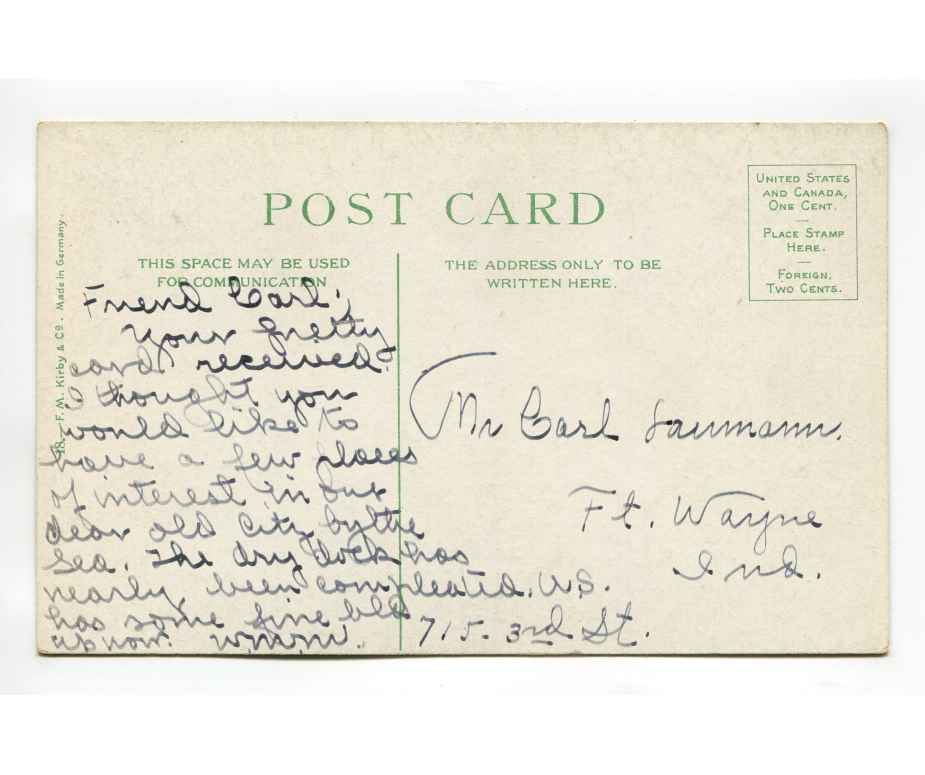 POST CARD
UNITED STATES
AND CANADA,
ONE CENT.
PLACE STAMP
HERE.
FOREIGN,
TWO CENTS.
THIS SPACE MAY BE USED
FOR COMMUNICATION
THE ADDRESS ONLY TO BE
WRITTEN HERE.
F. M. Kirby & Co. Made in Germany.
Friend Carl;
Your pretty
card received.
I thought you
would like to
have a few places
of interest in our
dear old City by the
Sea. The dry dock has
nearly been compleated. U.S.
has some fine bld
up now. W.M.M.
Mr Carl Laumann.
Ft. Wayne
Ind.
715- 3rd St.